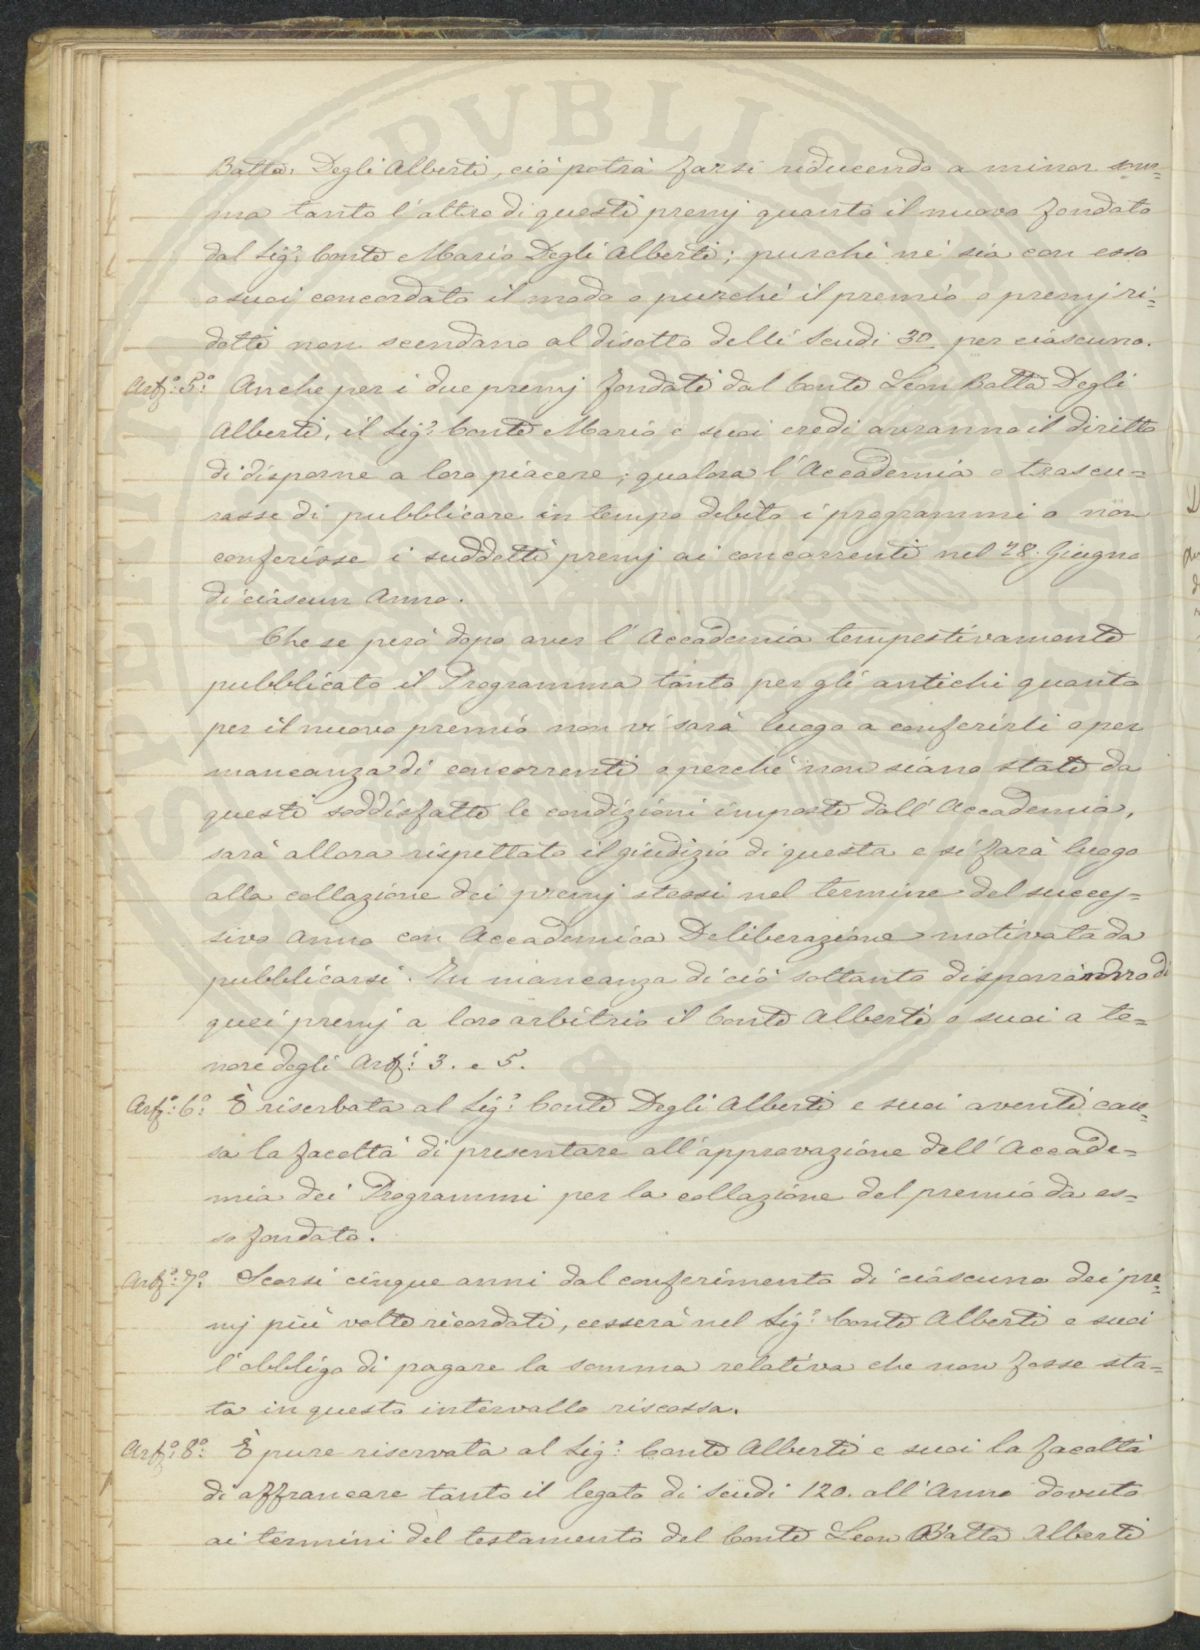 Batta: Degli Alberti, ciò potrà farsi riducendo a minor som=
ma tanto l'altro di questi premj quanto il nuovo fondato
dal Sig.r Conte Mario Degli Alberti; purchè ne sia con esso
o suoi concordato il modo o purchè il premio o premj ri=
dotti non scendano al disotto delli Scudi 30 per ciascuno.
Art.o 5.o Anche per i due premj fondati dal Conte Leon Batta Degli
Alberti, il Sig.r Conte Mario e suoi eredi avranno il diritto
di disporne a loro piacere; qualora l'Accademia o trascu=
rasse di pubblicare in tempo debito i programmi o non
conferisse i suddetti premj ai concorrenti nel 28. Giugno
di ciascun Anno.
Che se però dopo aver l'Accademia tempestivamente
pubblicato il Programma tanto per gli antichi quanto
per il nuovo premio non vi sarà luogo a conferirli o per
mancanza di concorrenti o perchè non siano state da
questi soddisfatte le condizioni imposte dall'Accademia,
sarà allora rispettato il giudizio di questa e si farà luogo
alla collazione dei premj stessi nel termine del succes=
sivo Anno con Accademica Deliberazione motivata da
pubblicarsi. In mancanza di ciò soltanto disporranno di
quei premj a loro arbitrio il Conte Alberti o suoi a te=
nore degli Art.i 3. e 5.
Art.o 6.o È riserbata al Sig.r Conte Degli Alberti e suoi aventi cau=
sa la facoltà di presentare all'approvazione dell'Accade=
mia dei Programmi per la collazione del premio da es=
so fondato.
Art.o 7.o Scorsi cinque anni dal conferimento di ciascuno dei pre=
mj più volte ricordati, cesserà nel Sig.r Conte Alberti e suoi
l'obbligo di pagare la somma relativa che non fosse sta=
ta in questo intervallo riscossa.
Art.o 8.o È pure riservata al Sig.r Conte Alberti e suoi la facoltà
di affrancare tanto il legato di Scudi 120. all'Anno dovuto
ai termini del testamento del Conte Leon Batta Alberti